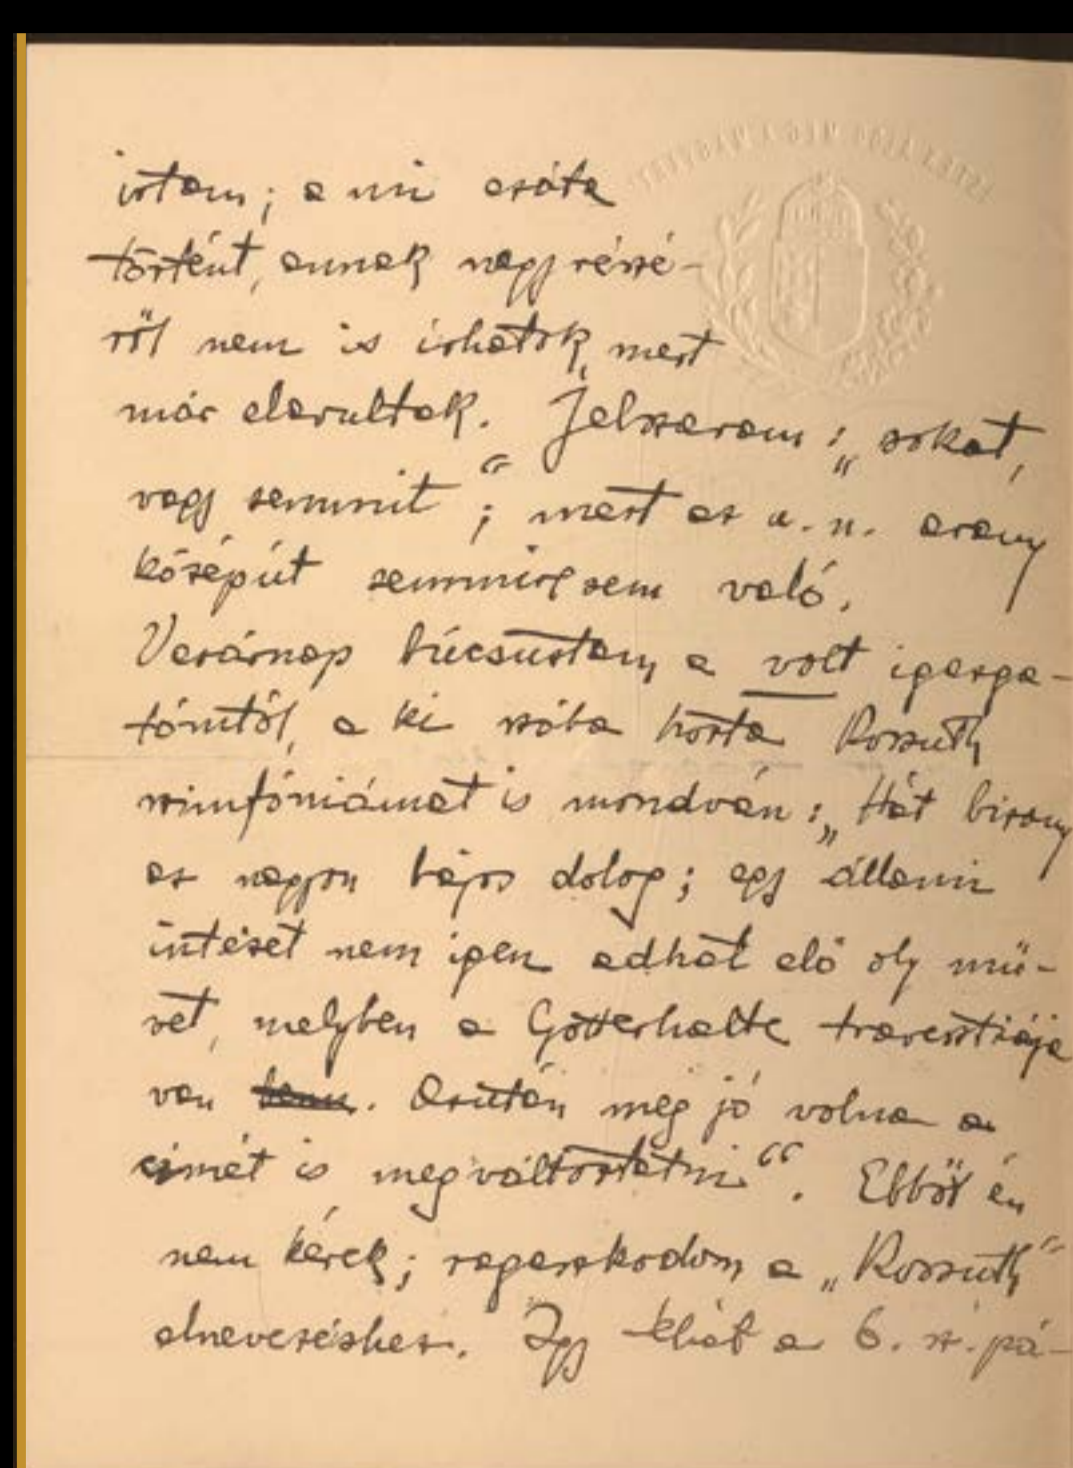 irtam; a mi azóta
történt, annak nagy részé-
ről nem is irhatok, mert
már elavultak. Jelszavam: „sokat,
vagy semmit“; mert az u. n. arany
középút semmire sem való.
Vasárnap búcsúztam a volt igazga-
tómtól, a ki szóba hozta Kossuth
szimfóniámat is mondván: „Hát bizony
ez nagyon bajos dolog; egy állami
intézet nem igen adhat elő oly mű-
vet, melyben a Gotterhalte travesztiája
van benn. Azután még jó volna a
cimét is megváltoztatni“. Ebből én
nem kérek; ragaszkodom a „Kossuth“
elnevezéshez. Igy tehát a 6. sz. pá-